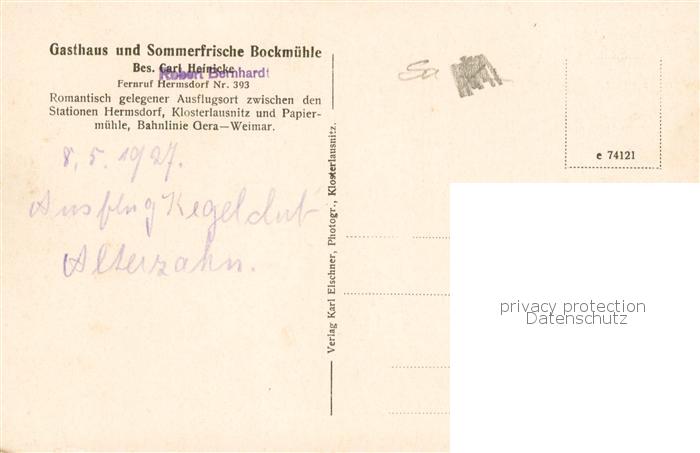 Gasthaus und Sommerfrische Bockmühle
Bes. Carl Heinicke
Robert Bernhardt
Fernruf Hermsdorf Nr. 393
Romantisch gelegener Ausflugsort zwischen den
Stationen Hermsdorf, Klosterlausnitz und Papier-
mühle, Bahnlinie Gera—Weimar.
8. 5. 1927.
Ausflug Kegelclub
Alterzahn.
Verlag Karl Elschner, Photogr., Klosterlausnitz.
e 74121
privacy protection
Datenschutz